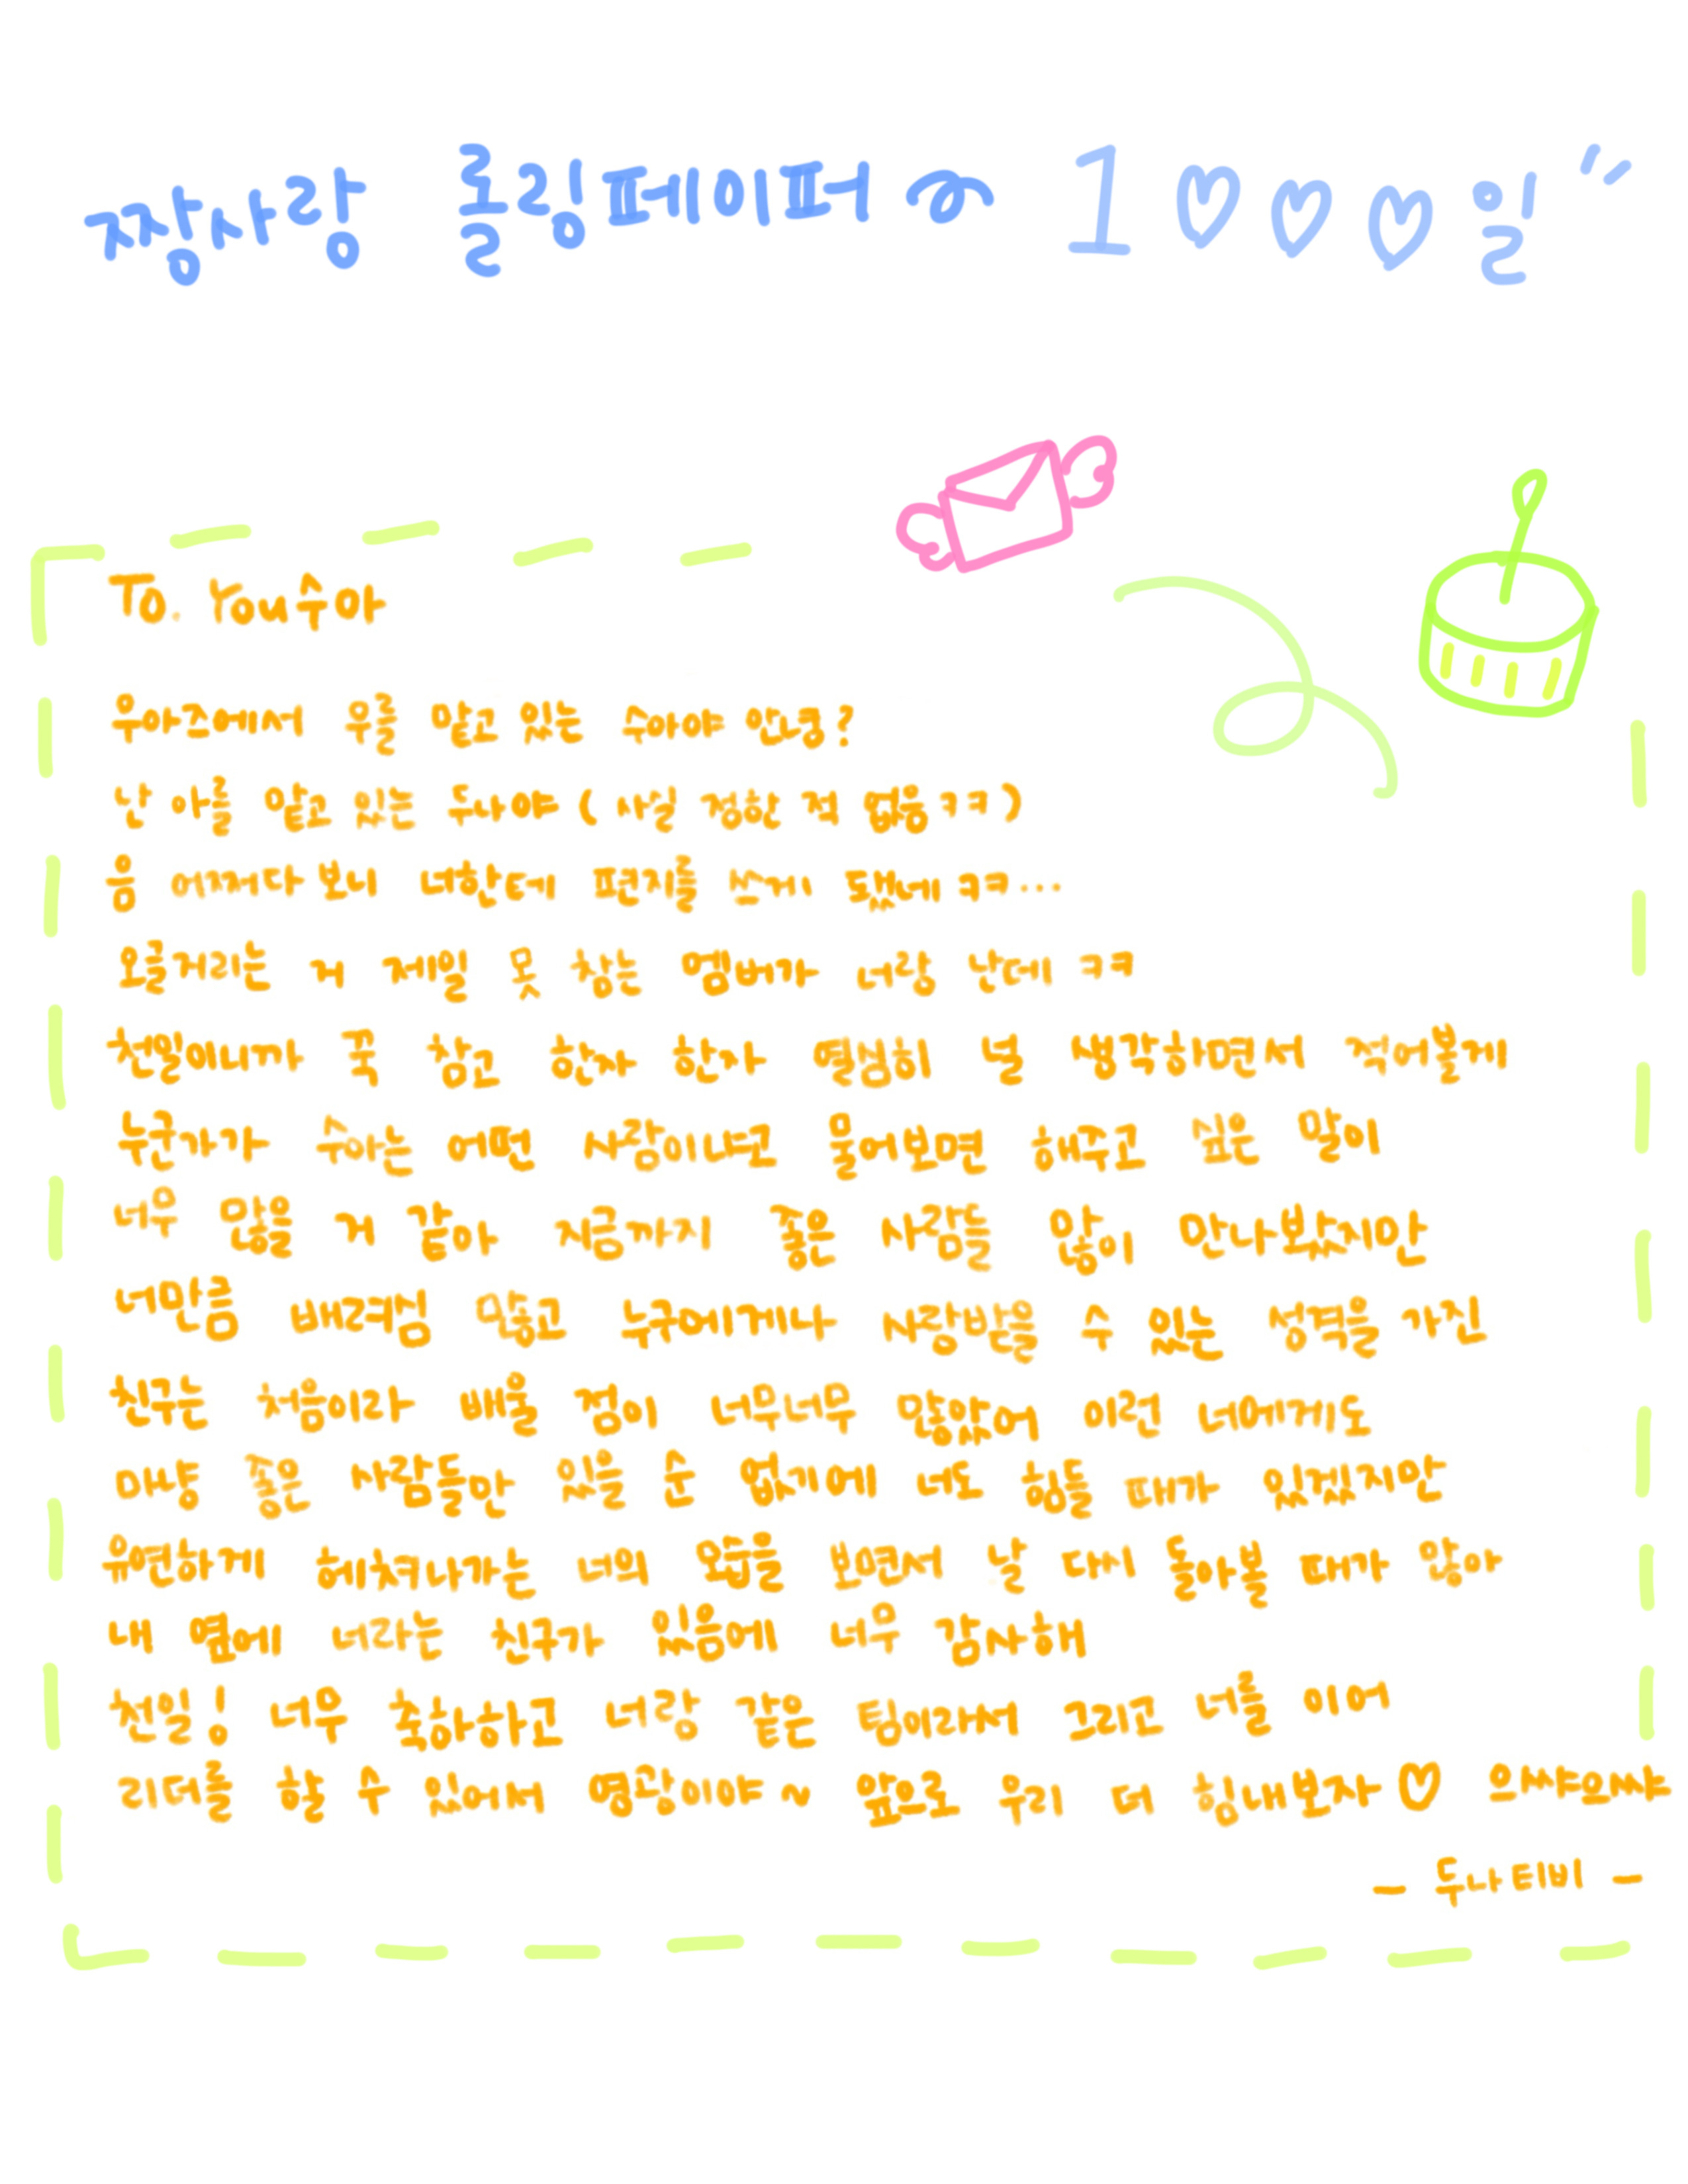 짱사랑 롤링페이퍼 1000일
To. You수아
우아즈에서 우를 맡고 있는 수아야 안녕?
난 아를 맡고 있는 두나야 (사실 정한 적 없음ㅋㅋ)
음 어쩌다 보니 너한테 편지를 쓰게 됐네 ㅋㅋ...
오글거리는 거 제일 못 참는 멤버가 너랑 난데 ㅋㅋ
천일이니까 꾹 참고 한자 한자 열심히 널 생각하면서 적어볼게
누군가가 수아는 어떤 사람이냐고 물어보면 해주고 싶은 말이
너무 많을 거 같아 지금까지 좋은 사람들 많이 만나봤지만
너만큼 배려심 많고 누구에게나 사랑받을 수 있는 성격을 가진
친구는 처음이라 배울 점이 너무너무 많았어 이런 너에게도
마냥 좋은 사람들만 있을 순 없기에 너도 힘들 때가 있겠지만
유연하게 헤쳐나가는 너의 모습을 보면서 날 다시 돌아볼 때가 많아
내 옆에 너라는 친구가 있음에 너무 감사해
천일! 너무 축하하고 너랑 같은 팀이라서 그리고 너를 이어
리더를 할 수 있어서 영광이야~ 앞으로 우리 더 힘내보자♡ 으쌰으쌰
- 두나티비 -